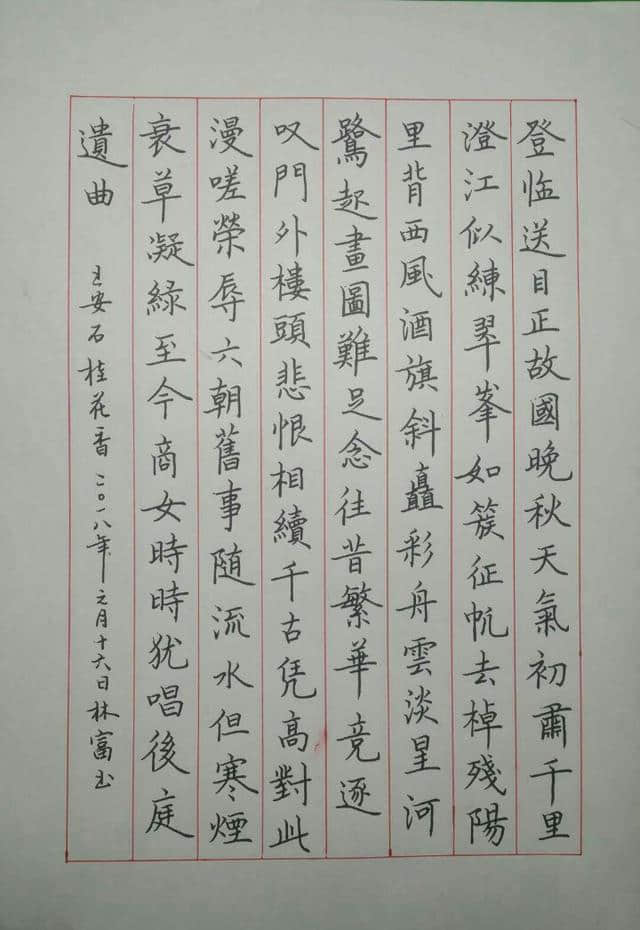 登临送目正故國晚秋天氣初肅千里
澄江似練翠峯如簇征帆去棹殘陽
里背西風酒旗斜矗彩舟雲淡星河
鷺起畫圖難足念往昔繁華竞逐
叹門外樓頭悲恨相續千古凭高對此
漫嗟榮辱六朝舊事随流水但寒煙
衰草凝綠至今商女時時犹唱後庭
遺曲 王安石桂花香二〇一八年元月十六日林富玉